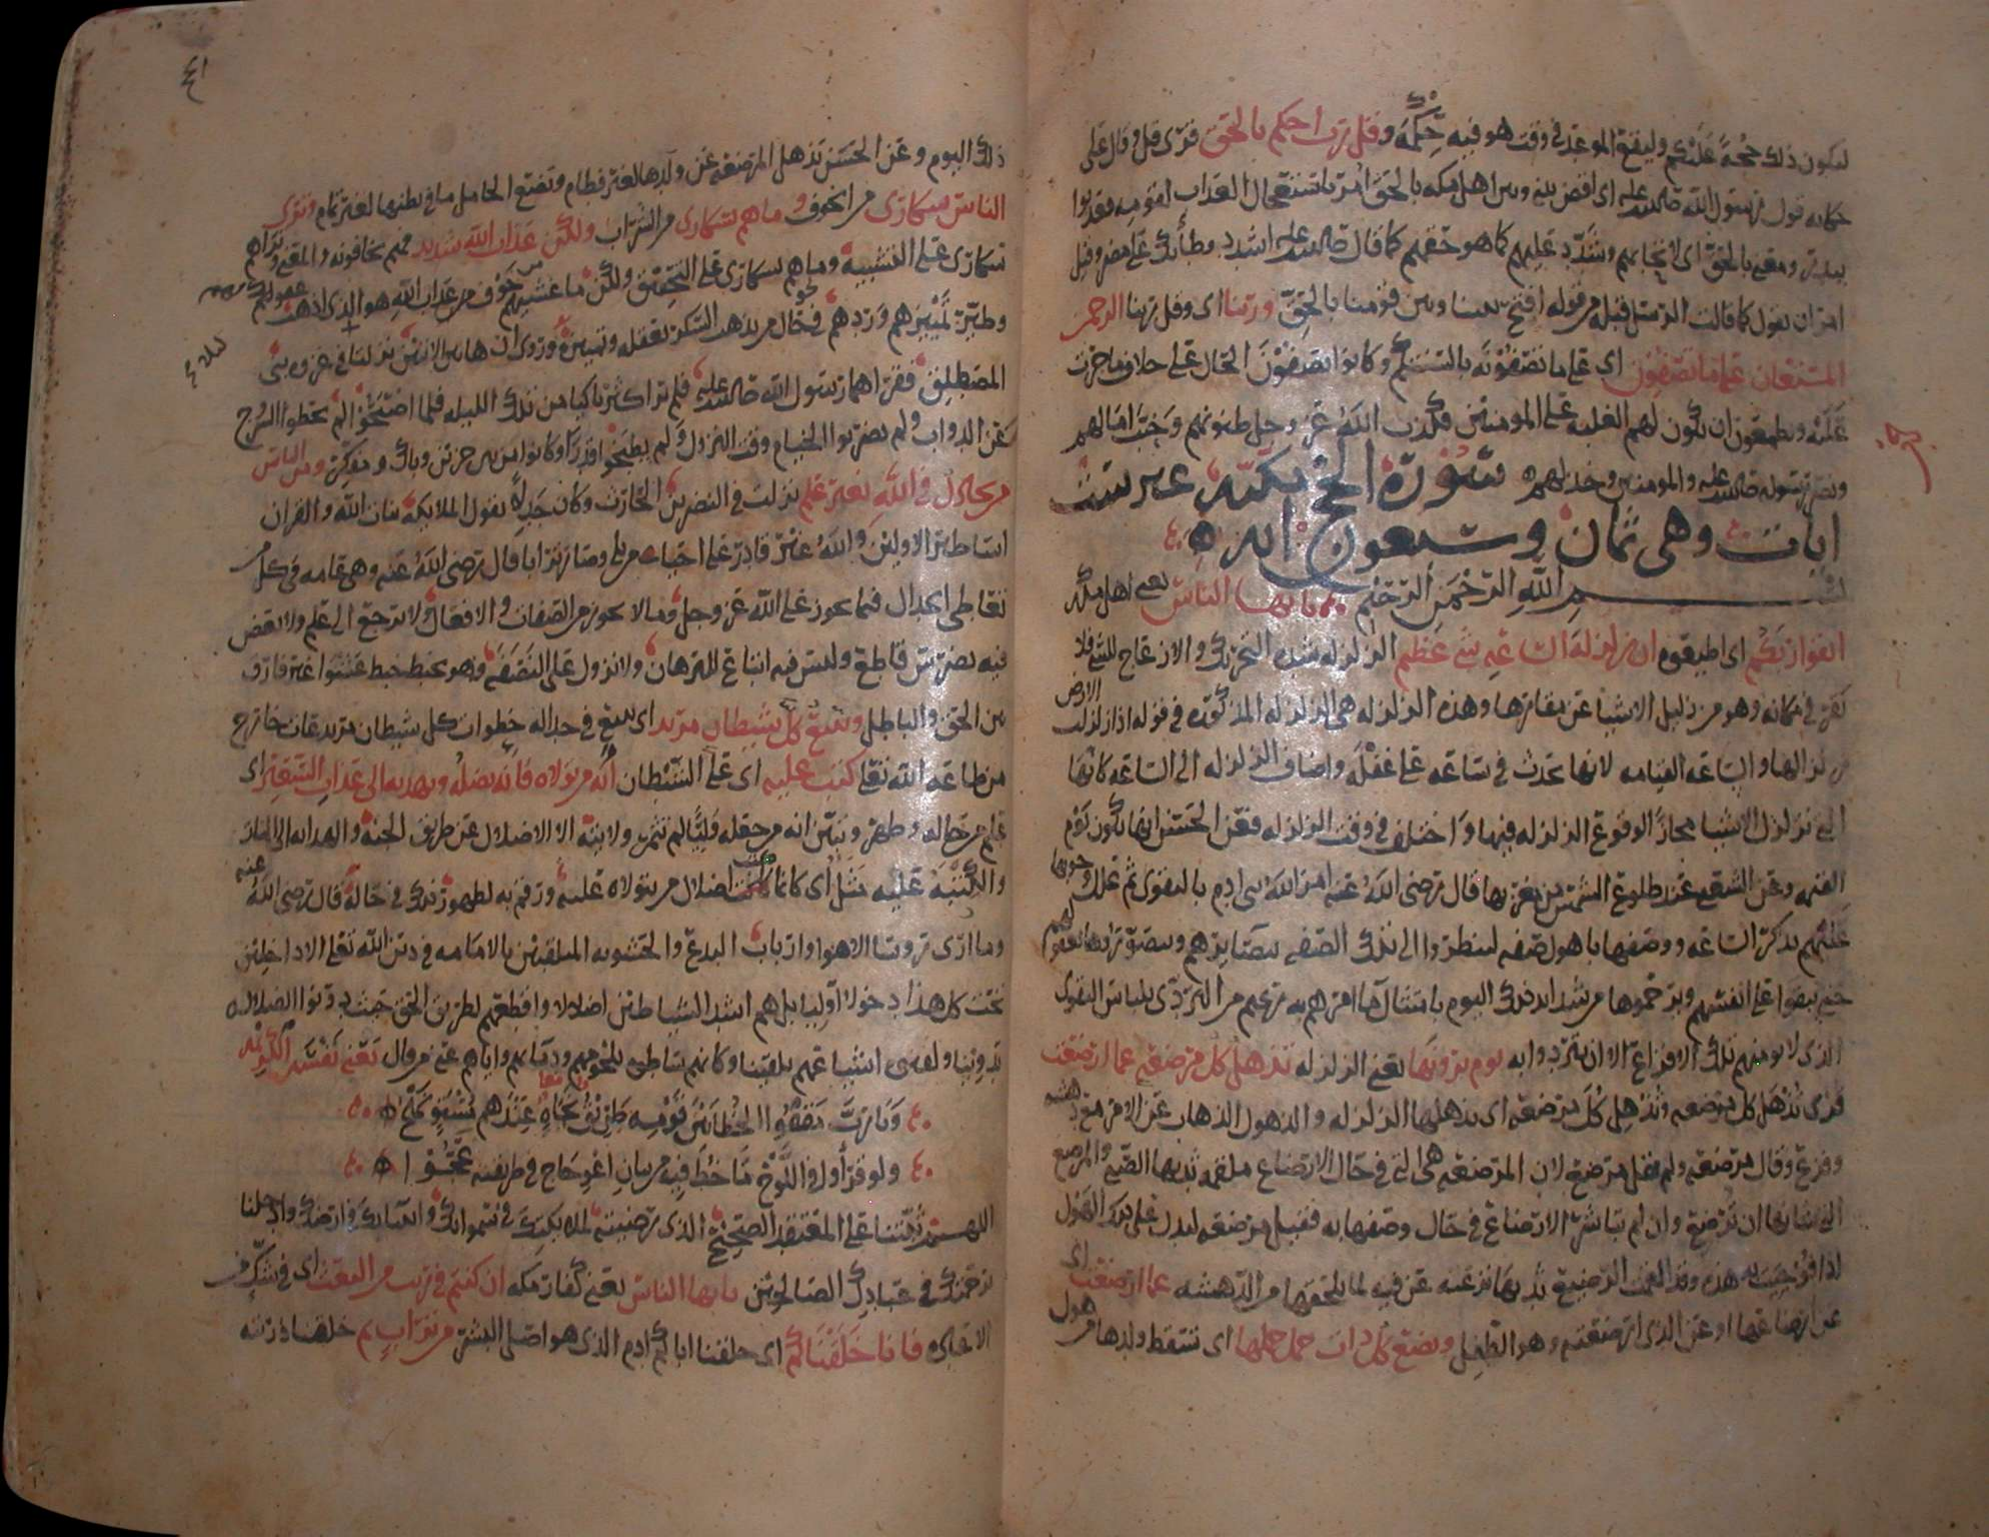 ليكون ذلك حجة عليكم وليقع الموعد في وقت هو فيه حكمة وقل رب احكم بالحق قرئ قل وقال على
حكاية قول رسول الله صلى الله عليه اى اقض بيننا وبين اهل مكة بالحق امر باستعجال العذاب لقومه فعذبوا
ببدر ومعنى بالحق اى لا تحابهم وشدد عليهم كما هو حقهم كما قال صلى الله عليه اشدد وطأتك على مضر وقيل
امر ان يقول كما قالت الرسل قبله من قوله افتح بيننا وبين قومنا بالحق وربنا اى وقل ربنا الرحمن
المستعان على ما تصفون اى على ما تصفونه بالسنتكم وكانوا يصفون الحال على خلاف ما جرت
عليه ويطمعون ان تكون لهم الغلبة على المومنين فكذب الله عز وجل ظنونهم وخيب امالهم
ونصر رسوله صلى الله عليه والمومنين وخذلهم سورة الحج مكية غير ست
ايات وهى ثمان وسبعون اية
بسم الله الرحمن الرحيم يا ايها الناس يعنى اهل مكة
اتقوا ربكم اى اطيعوه ان زلزلة الساعة شئ عظيم الزلزلة شدة التحريك والازعاج للشئ فلا
تقر في مكانه وهو من زليل الاشيا عن مقارها وهذه الزلزلة هى الزلزلة المذكورة في قوله اذا زلزلت الارض
زلزالها والساعة القيامة لانها تحدث في ساعة على غفلة واضاف الزلزلة الى الساعة كانها
التى تزلزل الاشيا مجازا لوقوع الزلزلة فيها واختلف في وقت الزلزلة فعن الحسن انها تكون يوم
القيمة وعن الشعبى عند طلوع الشمس من مغربها قال رضى الله عنه امر الله بنى ادم بالتقوى ثم علل وجوبها
عليهم بذكر الساعة ووصفها باهول صفة لينظروا الى تلك الصفة ببصايرهم ويتصوروها بعقولهم
حتى يبقوا على انفسهم ويرحموها من شدايد ذلك اليوم بامتثال ما امرهم به ربهم من التردى بلباس التقوى
الذى لا يومنهم تلك الافزاع الا ان يتردوا به يوم ترونها يعنى الزلزلة تذهل كل مرضعة عما ارضعت
قرئ تذهل كل مرضعة وتذهل كل مرضعة اى تذهلها الزلزلة والذهول الذهاب عن الامر مع دهشة
وفزع وقال مرضعة ولم يقل مرضع لان المرضعة هى التى في حال الارضاع ملقمة ثديها الصبى والمرضع
التى شانها ان ترضع وان لم تباشر الارضاع في حال وصفها به فقيل مرضعة ليدل على ان ذلك الهول
اذا فوجيت به هذه وقد القمت الرضيع ثديها نزعته عن فيه لما يلحقها من الدهشة عما ارضعت اى
عن ارضاعها او عن الذى ارضعته وهو الطفل وتضع كل ذات حمل حملها اى تسقط ولدها من هول
ذلك اليوم وعن الحسن تذهل المرضعة عن ولدها لغير فطام وتضع الحامل ما في بطنها لغير تمام وترى
الناس سكارى من الخوف وما هم بسكارى من الشراب ولكن عذاب الله شديد فهم يخافونه والمعنى وتراهم
سكارى على التشبيه وما هم بسكارى على التحقيق ولكن ما غشيهم من خوف من عذاب الله هو الذى اذهب عقولهم
وطير تمييزهم وردهم في نحو حال من يذهب السكر بعقله وتمييزه وروى ان هاتين الايتين نزلتا في غزوة بنى
المصطلق فقراهما رسول الله صلى الله عليه فلم نر اكثر باكيا من تلك الليلة فلما اصبحوا لم يحطوا السرج
عن الدواب ولم يضربوا الخيام وقت النزول ولم يطبخوا قدرا وكانوا من بين حزين وباك ومفكر ومن الناس
من يجادل في الله بغير علم نزلت في النضر بن الحارث وكان جدلا يقول الملايكة بنات الله والقران
اساطير الاولين والله غير قادر على احياء من بلى وصار ترابا قال رضى الله عنه وهى عامة في كل من
تعاطى الجدال فيما يجوز على الله عز وجل وما لا يجوز من الصفات والافعال ولا يرجع الى علم ولا يعض
فيه بضرس قاطع وليس فيه اتباع للبرهان ولا نزول على النصفة فهو يخبط خبط عشوا غير فارق
بين الحق والباطل ويتبع كل شيطان مريد اى يتبع في جداله خطوات كل شيطان مريد عات خارج
من طاعة الله تعلى كتب عليه اى على الشيطان انه من تولاه فانه يضله ويهديه الى عذاب السعير اى
علم من حاله وظهر وتبين انه من جعله وليا لم تثمر ولايته الا الاضلال عن طريق الجنة والهداية الى النار
والكتبة عليه مثل اى كانما كتب اضلال من يتولاه عليه ورقم به لظهور ذلك في حاله قال رضى الله عنه
وما ارى روسا الاهوا وارباب البدع والحشوية المتلقبين بالامامة في دين الله تعلى الا داخلين
تحت كل هذا دخولا اوليا بل هم اشد الشياطين اضلالا واقطعهم لطريق الحق حيث دونوا الضلال
تدوينا ولقنوه اشياعهم تلقينا وكانهم ساطوه بلحومهم ودمايهم واياهم عنى من قال
ويا رب مقفو الخطا بين قومه طريق نجاة عندهم مستو نهج
ولو قرأوا في اللوح ما خط فيه من بيان اعوجاج في طريقته عجوا
اللهم ثبتنا على المعتقد الصحيح الذى رضيته لملايكتك في سمواتك وانبيايك في ارضك وادخلنا
برحمتك في عبادك الصالحين يا ايها الناس يعنى كفار مكة ان كنتم في ريب من البعث اى في شك من
فانا خلقناكم اى خلقنا اباكم ادم الذى هو اصل البشر من تراب ثم خلقنا ذريته